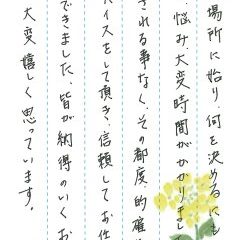 場所に始り、何を決めるにも
悩み、大変時間がかかりまし
される事なく、その都度、的確
バイスをして頂き、信頼してお任
できました。皆が納得のいくお
大変嬉しく思っています。